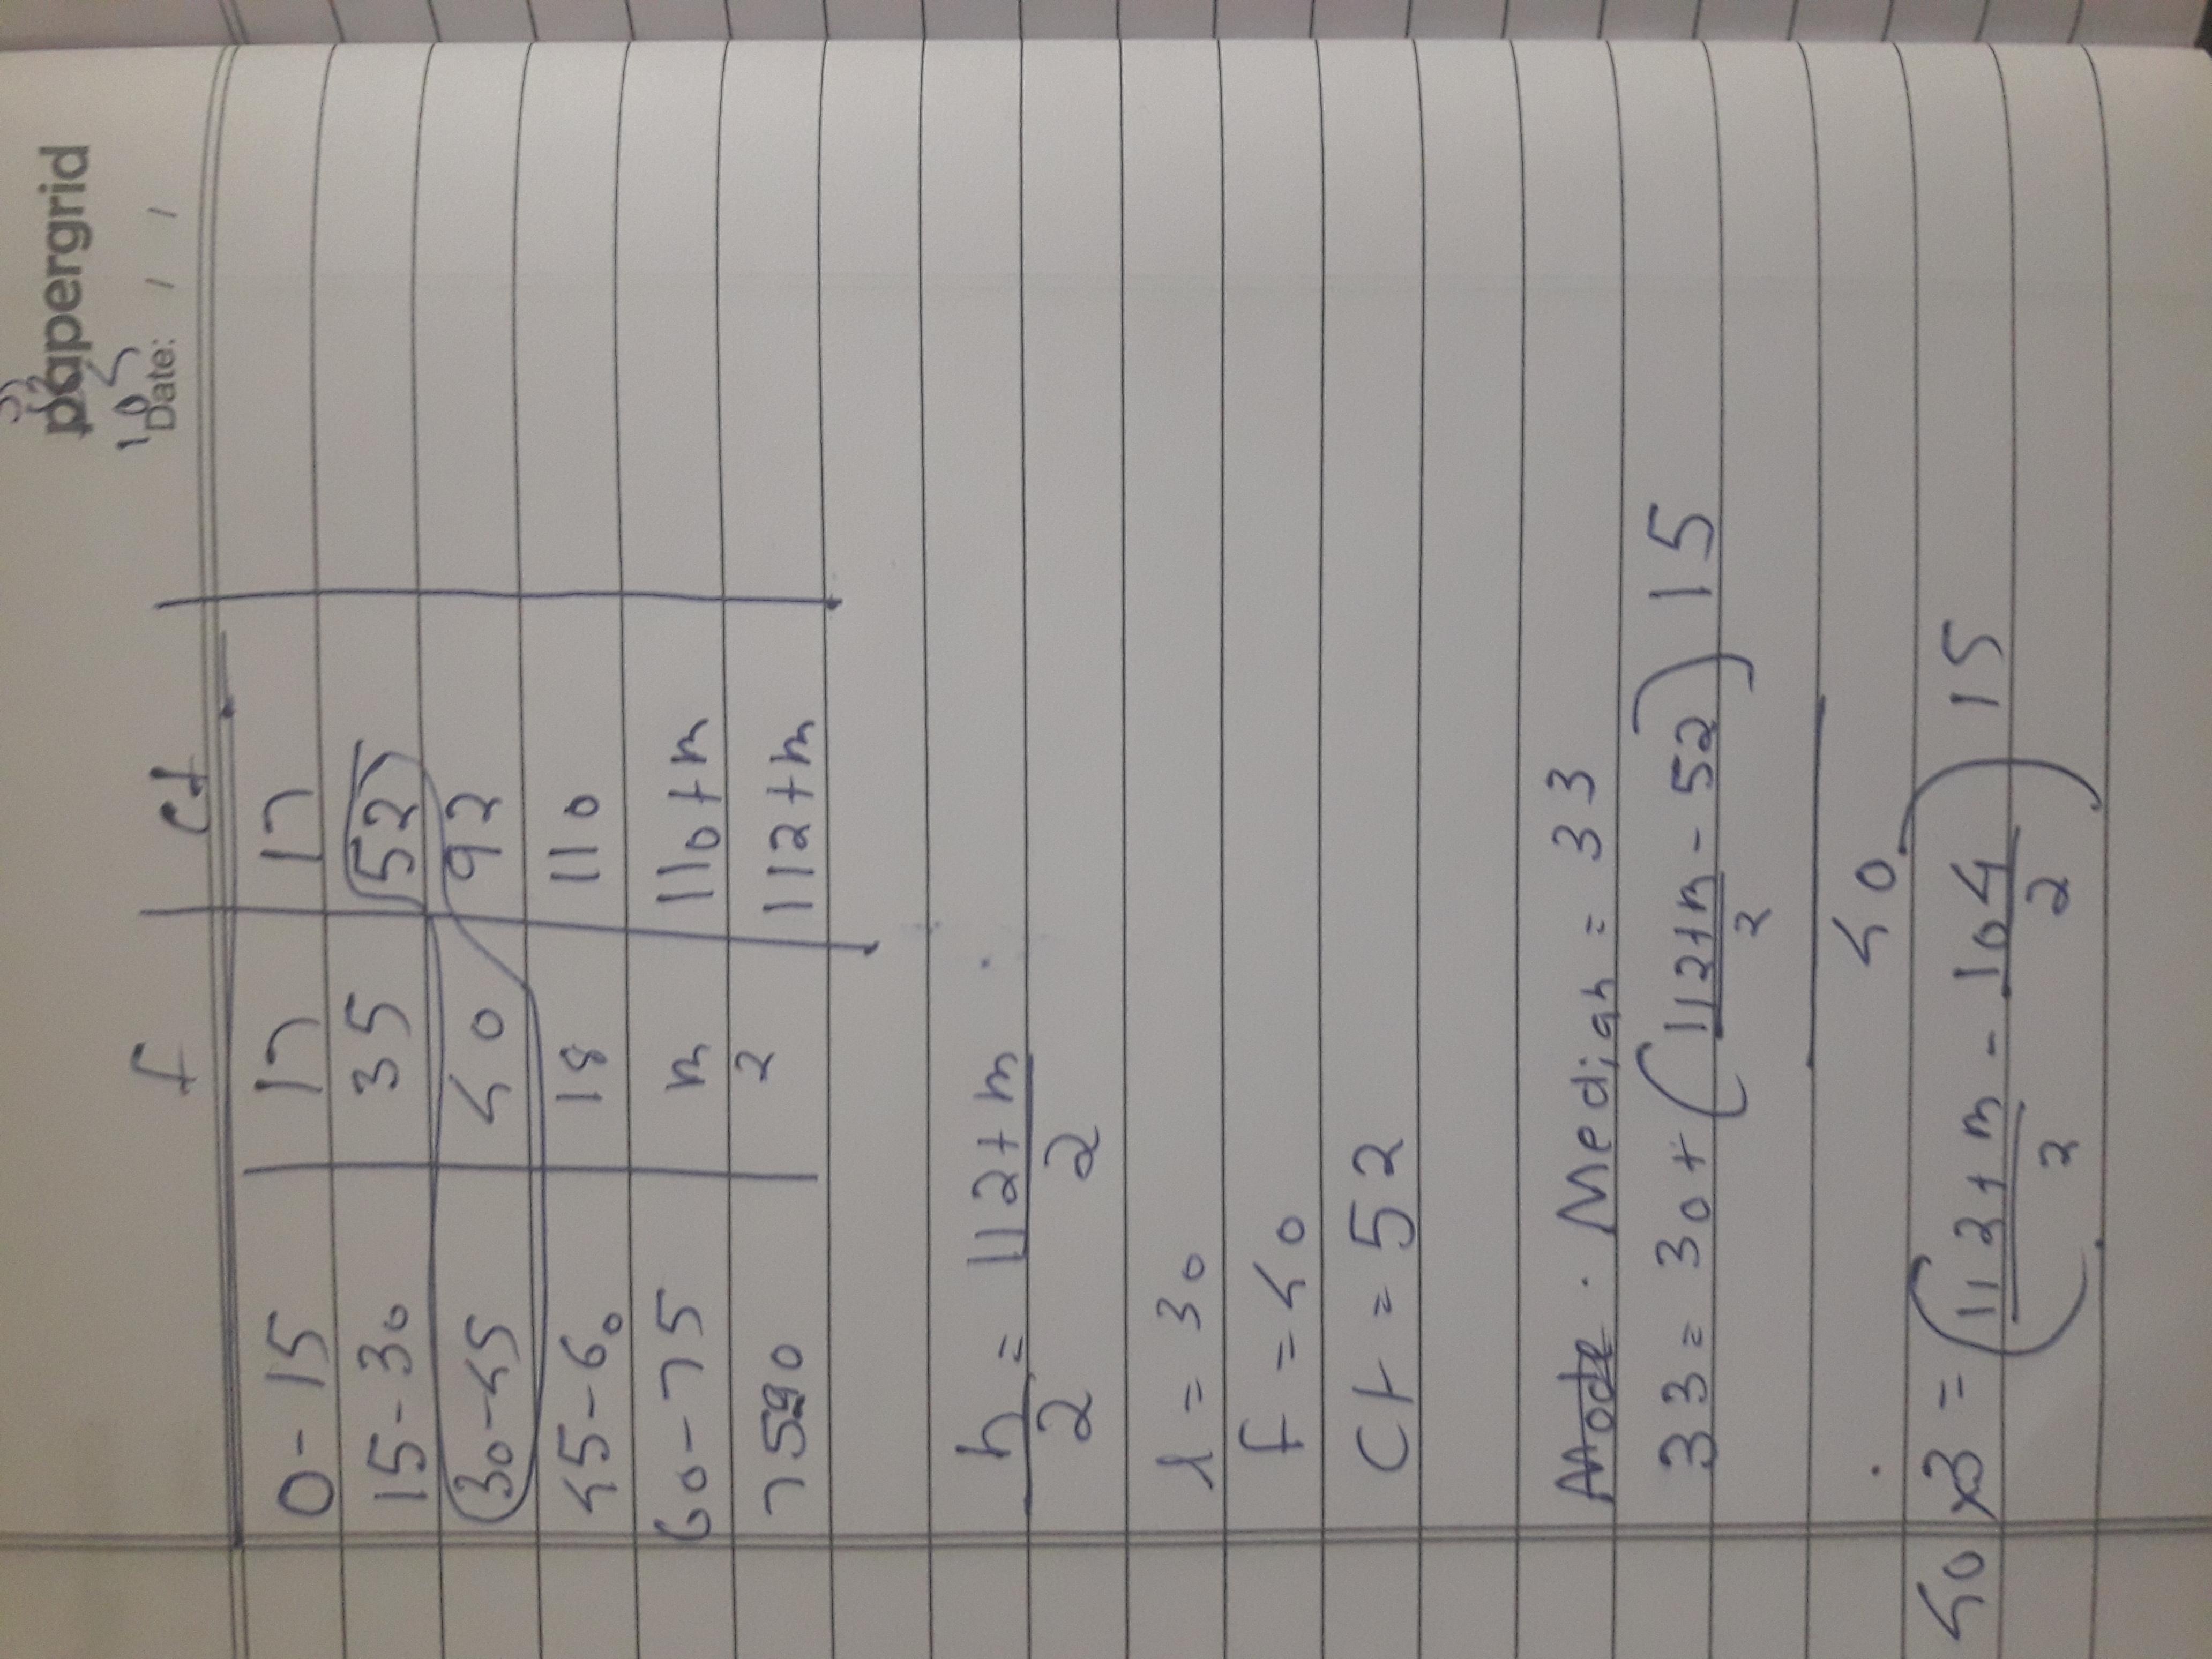 papergrid
Date: / /
f cf
0-15 17 17
15-30 35 52
30-45 40 92
45-60 18 110
60-75 m 110+m
75-90 2 112+m
n/2 = 112+m/2
l = 30
f = 40
Cf = 52
Mode. Median = 33
33 = 30 + (112+m/2 - 52) 15
40
40 x 3 = (112+m/2 - 104/2) 15